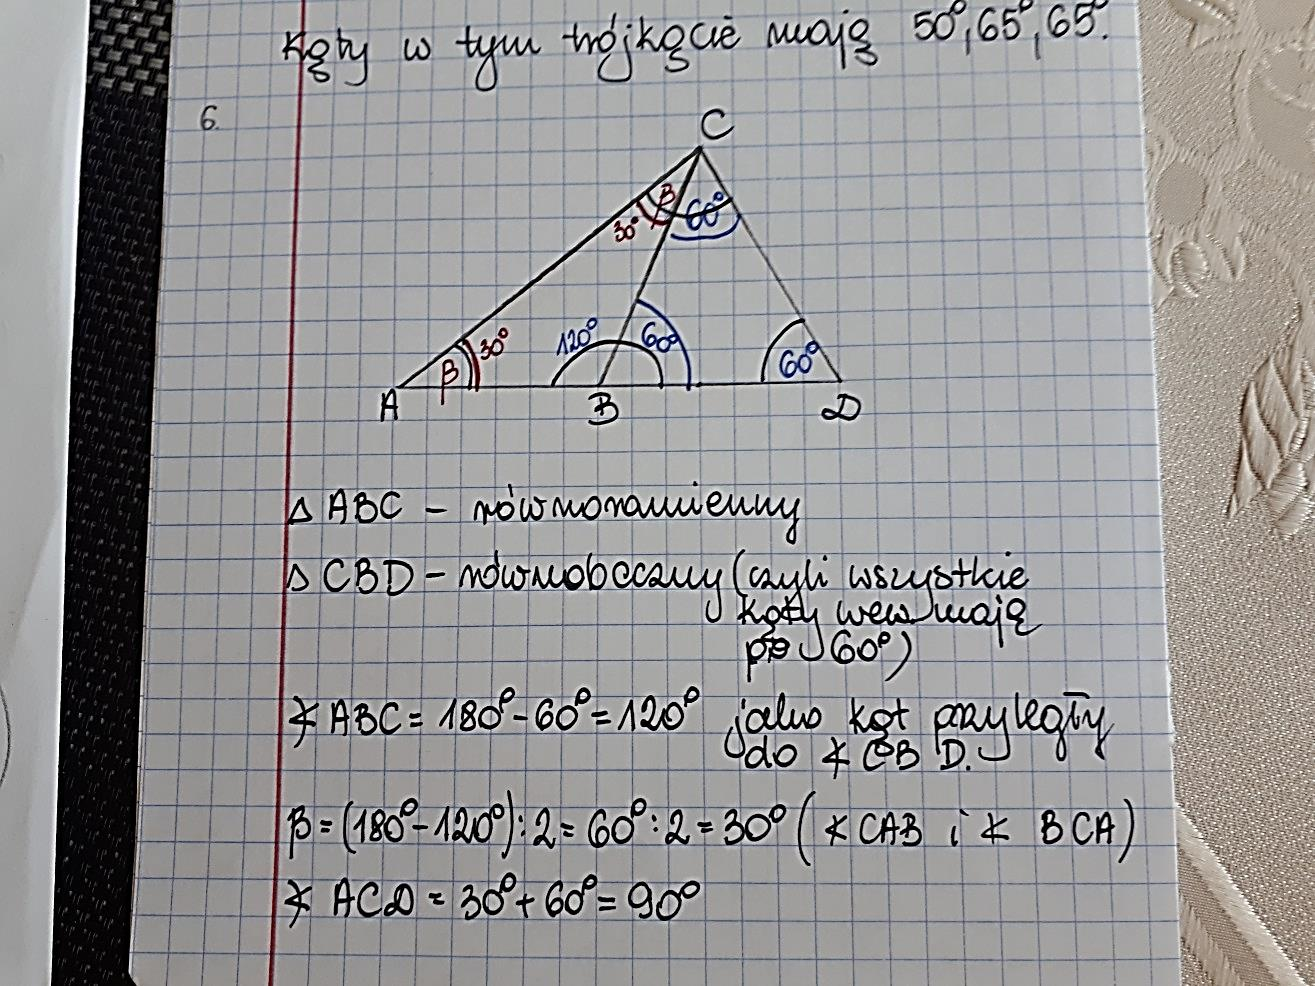 Kąty w tym trójkącie mają 50°, 65°, 65°.
6.
C
β
30°
60°
30°
120°
60°
60°
β
A
B
D
△ ABC – równoramienny
△ CBD – równoboczny (czyli wszystkie
kąty wew. mają
po 60°)
∢ ABC = 180° - 60° = 120° jako kąt przyległy
do ∢ CBD.
β = (180° - 120°) : 2 = 60° : 2 = 30° (∢ CAB i ∢ BCA)
∢ ACD = 30° + 60° = 90°